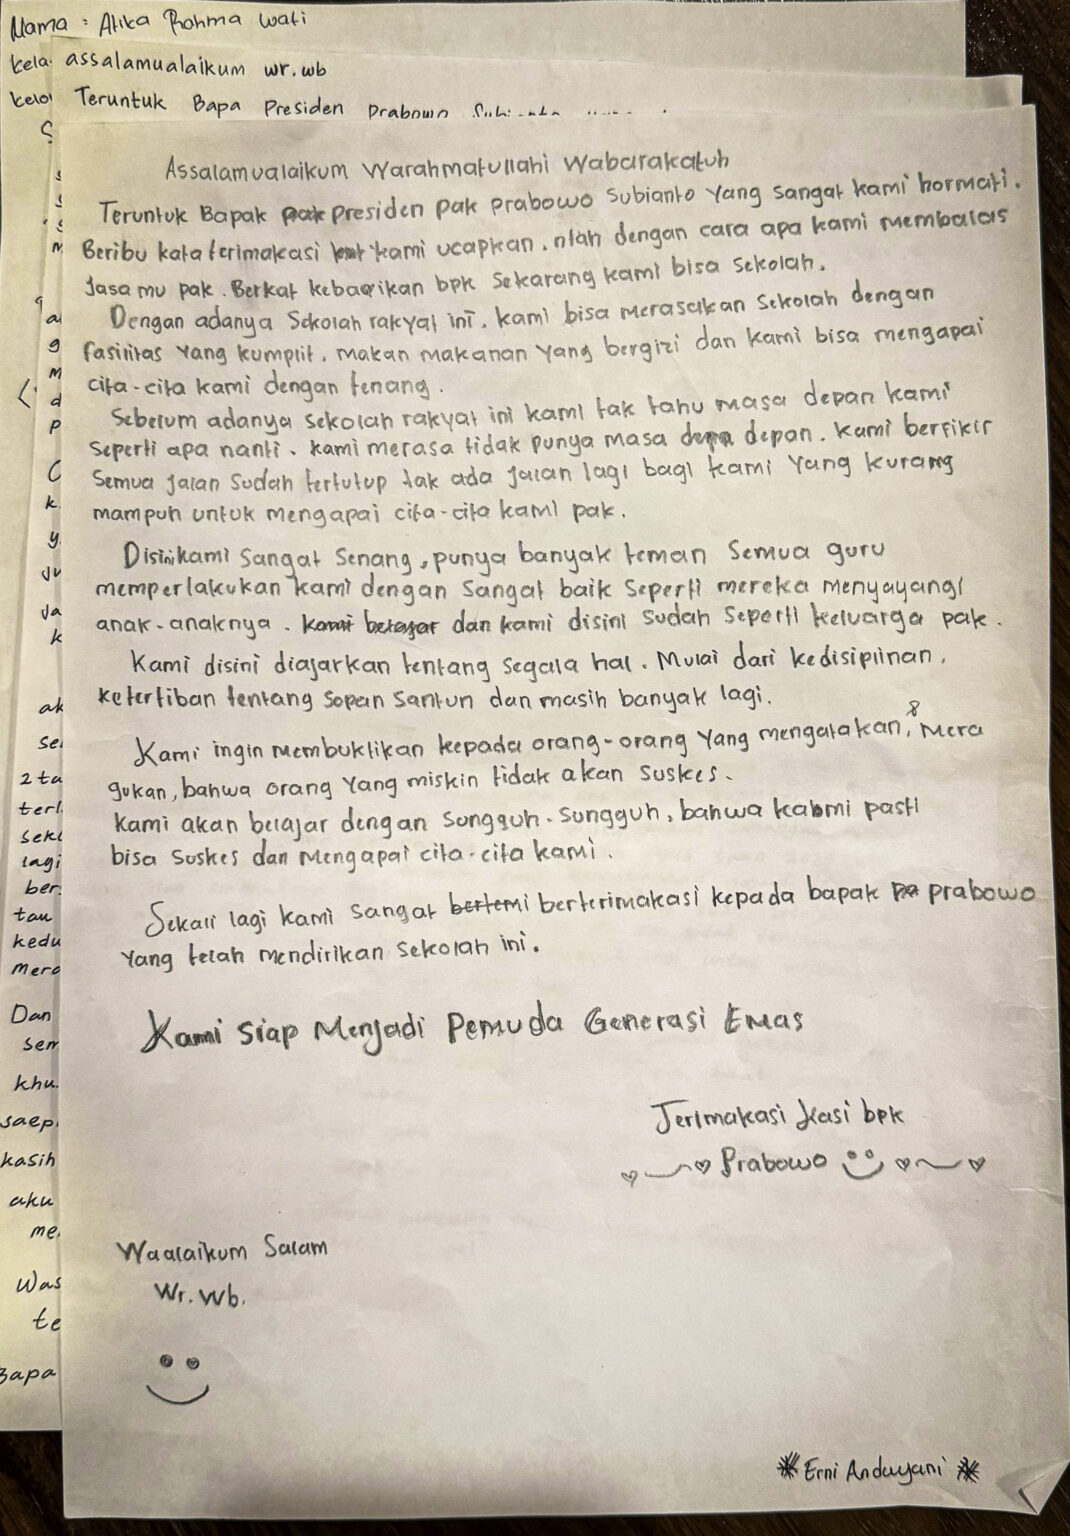 Nama : Atika Rohma Wati
kela
assalamualaikum wr.wb
kelo
Teruntuk Bapa Presiden Prabowo
Assalamualaikum Warahmatullahi Wabarakatuh
Teruntuk Bapak pak presiden pak prabowo subianto yang sangat kami hormati.
Beribu kata terimakasi kami ucapkan. ntah dengan cara apa kami membalas
Jasa mu pak. Berkat kebaikan bpk sekarang kami bisa sekolah.
Dengan adanya sekolah rakyat ini. kami bisa merasakan sekolah dengan
fasilitas yang kumplit. makan makanan yang bergizi dan kami bisa mengapai
cita-cita kami dengan tenang.
Sebelum adanya sekolah rakyat ini kami tak tahu masa depan kami
seperti apa nanti. kami merasa tidak punya masa depan. kami berfikir
semua jalan sudah tertutup tak ada jalan lagi bagi kami yang kurang
mampuh untuk mengapai cita-cita kami pak.
Disini kami sangat senang, punya banyak teman semua guru
memperlakukan kami dengan sangat baik seperti mereka menyayangi
anak-anaknya. kami belajar dan kami disini sudah seperti keluarga pak.
Kami disini diajarkan tentang segala hal. Mulai dari kedisiplinan,
ketertiban tentang sopan santun dan masih banyak lagi.
Kami ingin membuktikan kepada orang-orang yang mengatakan, mera
gukan, bahwa orang yang miskin tidak akan suskes.
kami akan belajar dengan sungguh-sungguh, bahwa kami pasti
bisa suskes dan mengapai cita-cita kami.
Sekali lagi kami sangat bertemi berterimakasi kepada bapak pa prabowo
yang telah mendirikan sekolah ini.
Kami siap Menjadi Pemuda Generasi Emas
Terimakasi kasi bpk
Prabowo
Waalaikum Salam
Wr. Wb.
Erni Andayani
2 ta
terl
seke
lagi
ber
tau
kedu
mera
Dan
sem
khu
saep
kasih
aku
me
Was
te
Bapa